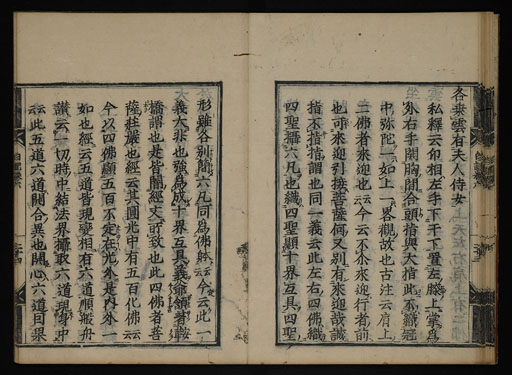 各乗雲有夫人侍女
私釋云印相左手下干下置左膝上掌爲
外右手開胸間合頭指與大指此不織冠
中弥陀一如上一畧觀故也古注云肩上
二佛者來迎也云今云不尓來迎行者前
也可來迎引接菩薩何又別有來迎哉誠
指不指指謂也同一義云此左右四佛織
四聖攝六凡也織四聖顯十界互具四聖
形雖各別間六凡同爲佛躰云今云此一
義大非也強爲成十界互具義
橋謂也是皆闇經文所致也此四佛者菩
薩莊嚴也經云其圓光中有五百化佛云
今以四佛顯五百不定在光外是内外一
如也經云五道皆現變相有六道順般舟
讃云一切時中結法界攝取六道現身中
云此五道六道開合異也開心六道因果